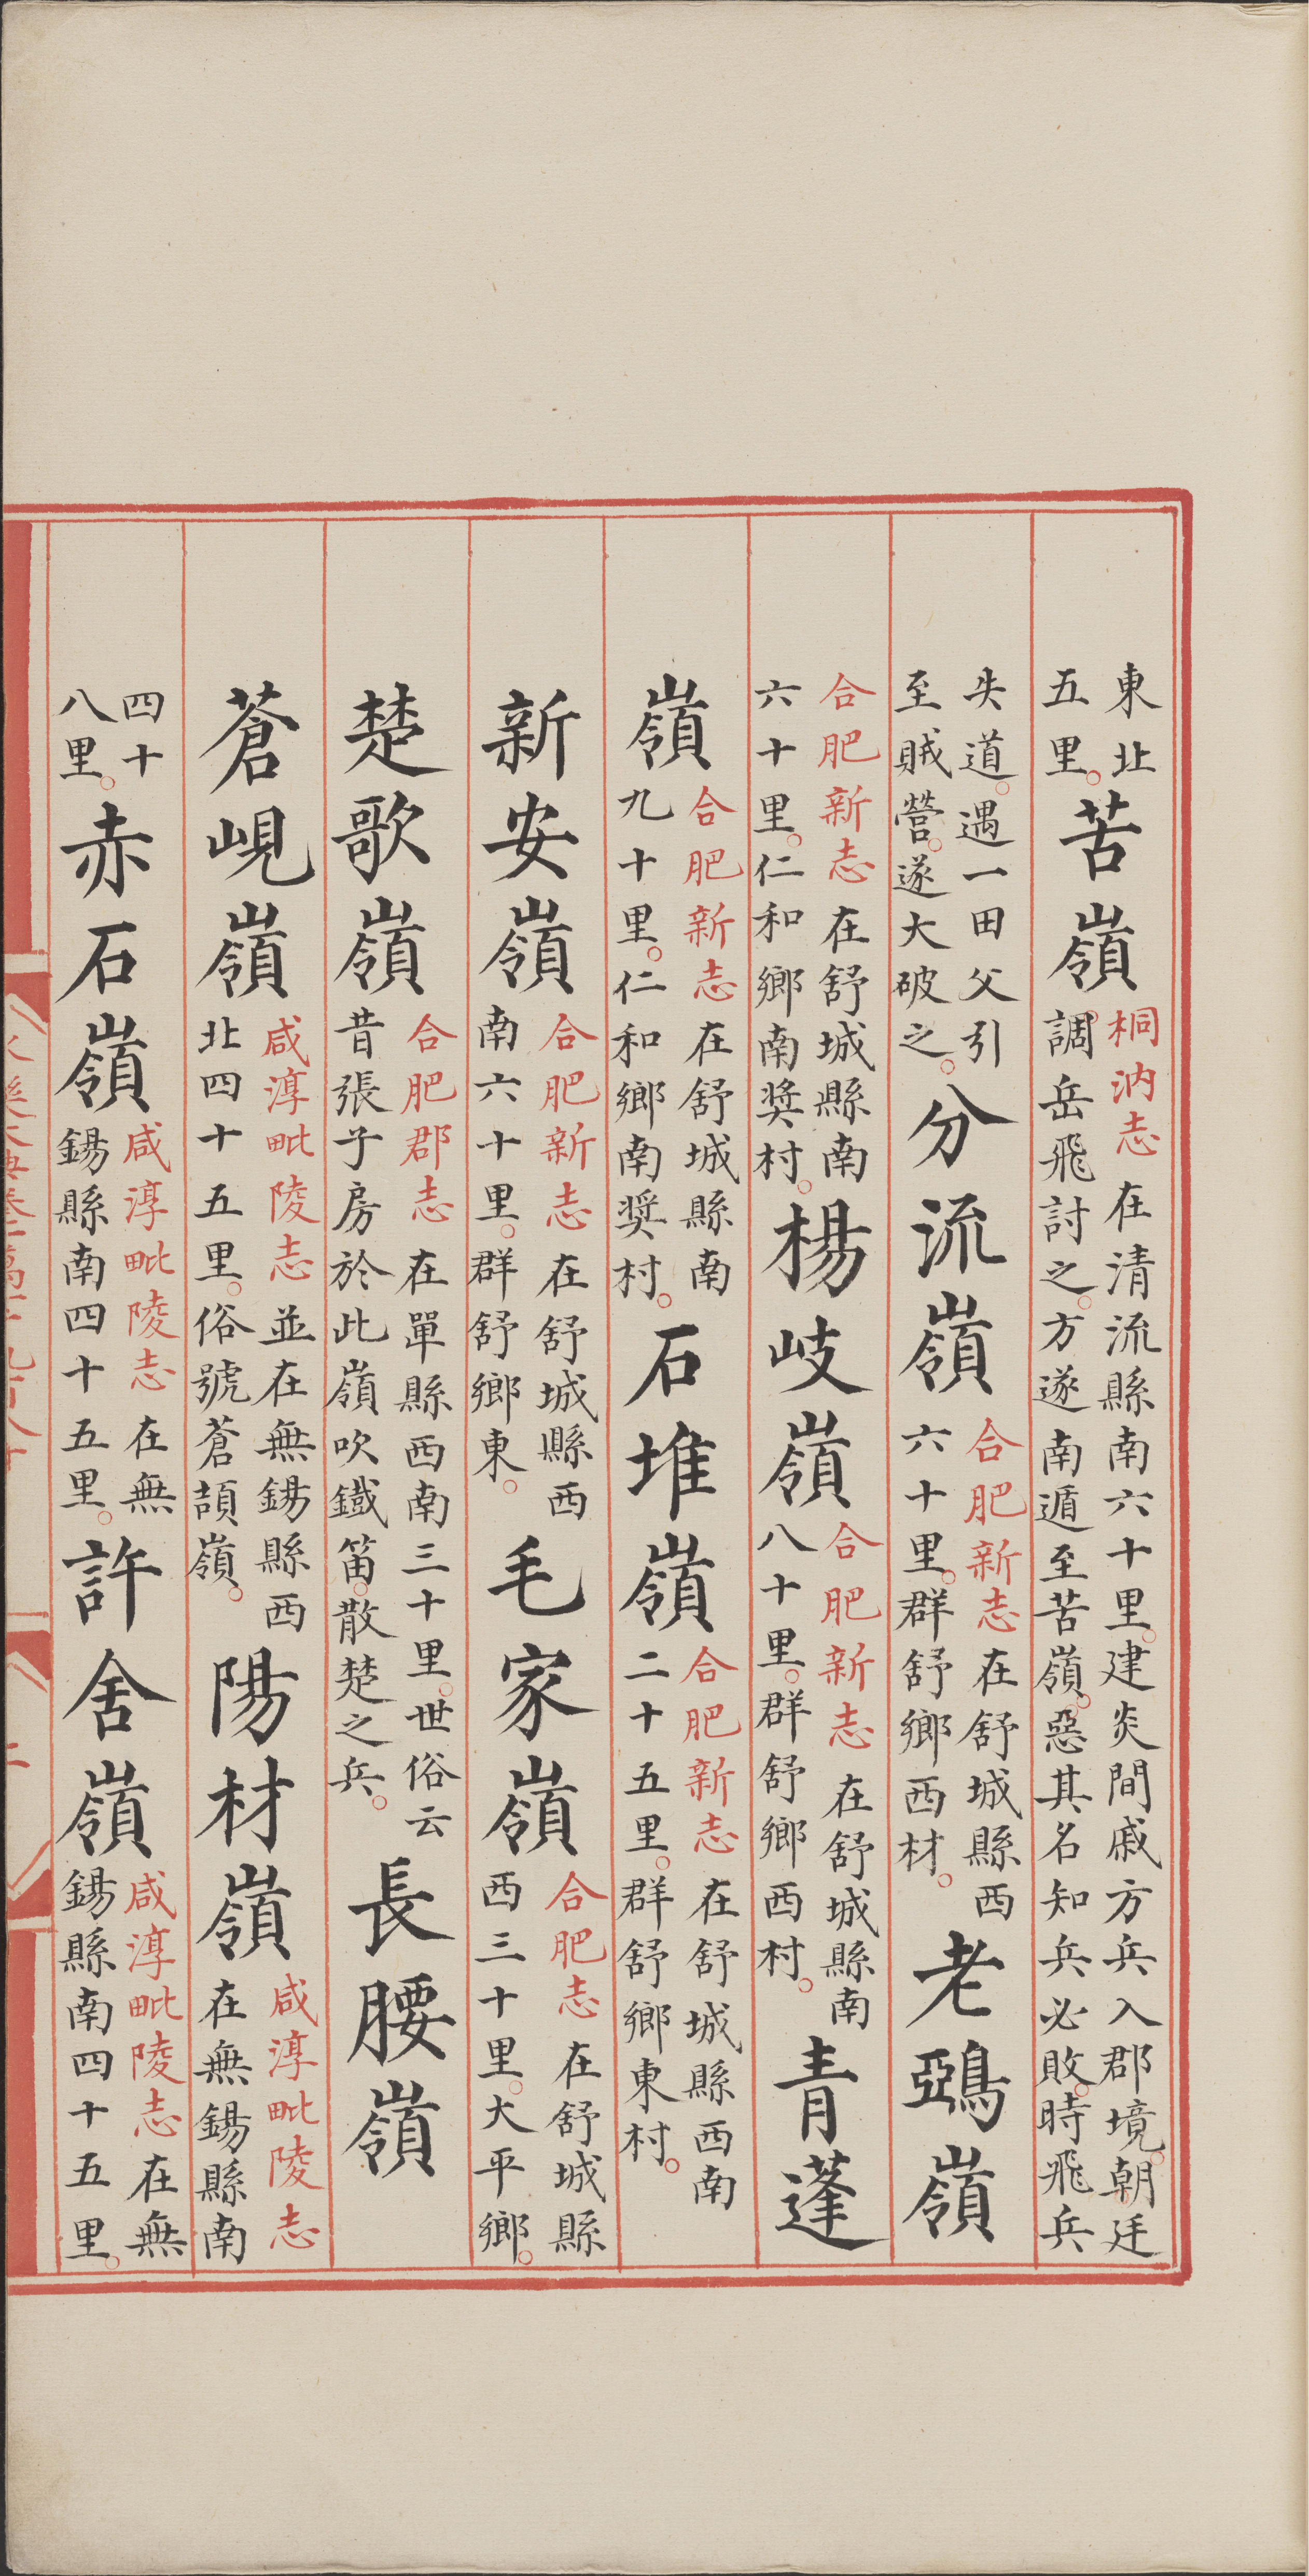 東北五里。苦嶺桐汭志在清流縣南六十里。建炎間戚方兵入郡境。朝廷調岳飛討之。方遂南遁至苦嶺。惡其名知兵必敗。時飛兵
失道。遇一田父引至賊營。遂大破之。分流嶺合肥新志在舒城縣西六十里。群舒鄉西材。老鵶嶺
合肥新志在舒城縣南六十里。仁和鄉南奬村。楊岐嶺合肥新志在舒城縣南八十里。群舒鄉西村。青蓬
嶺合肥新志在舒城縣南九十里。仁和鄉南奬村。石堆嶺合肥新志在舒城縣西南二十五里。群舒鄉東村。
新安嶺合肥新志在舒城縣西南六十里。群舒鄉東。毛家嶺合肥志在舒城縣西三十里。大平鄉。
楚歌嶺合肥郡志在單縣西南三十里。世俗云昔張子房於此嶺吹鐵笛。散楚之兵。長腰嶺
蒼峴嶺咸淳毗陵志並在無錫縣西北四十五里。俗號蒼頡嶺。陽材嶺咸淳毗陵志在無錫縣南
四十八里。赤石嶺咸淳毗陵志在無錫縣南四十五里。許舍嶺咸淳毗陵志在無錫縣南四十五里。